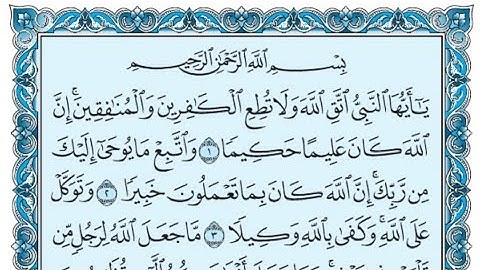 بِسْمِ اللَّهِ الرَّحْمَٰنِ الرَّحِيمِ
يَا أَيُّهَا النَّبِيُّ اتَّقِ اللَّهَ وَلَا تُطِعِ الْكَافِرِينَ وَالْمُنَافِقِينَ ۗ إِنَّ
اللَّهَ كَانَ عَلِيمًا حَكِيمًا ١ وَاتَّبِعْ مَا يُوحَىٰ إِلَيْكَ
مِن رَّبِّكَ ۚ إِنَّ اللَّهَ كَانَ بِمَا تَعْمَلُونَ خَبِيرًا ٢ وَتَوَكَّلْ
عَلَى اللَّهِ ۚ وَكَفَىٰ بِاللَّهِ وَكِيلًا ٣ مَّا جَعَلَ اللَّهُ لِرَجُلٍ مِّن